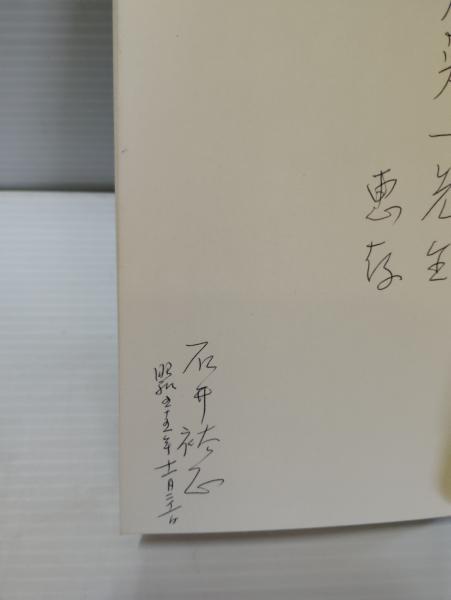 一先生
恵存
石井裕正
昭和五十五年十一月二十一日